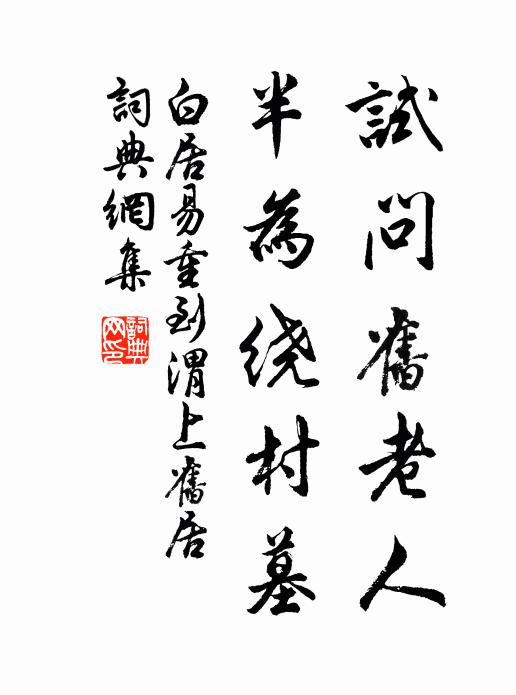 試問舊老人
半為绕村墓
白居易重到渭上舊居
詞典網集
詞典
网印